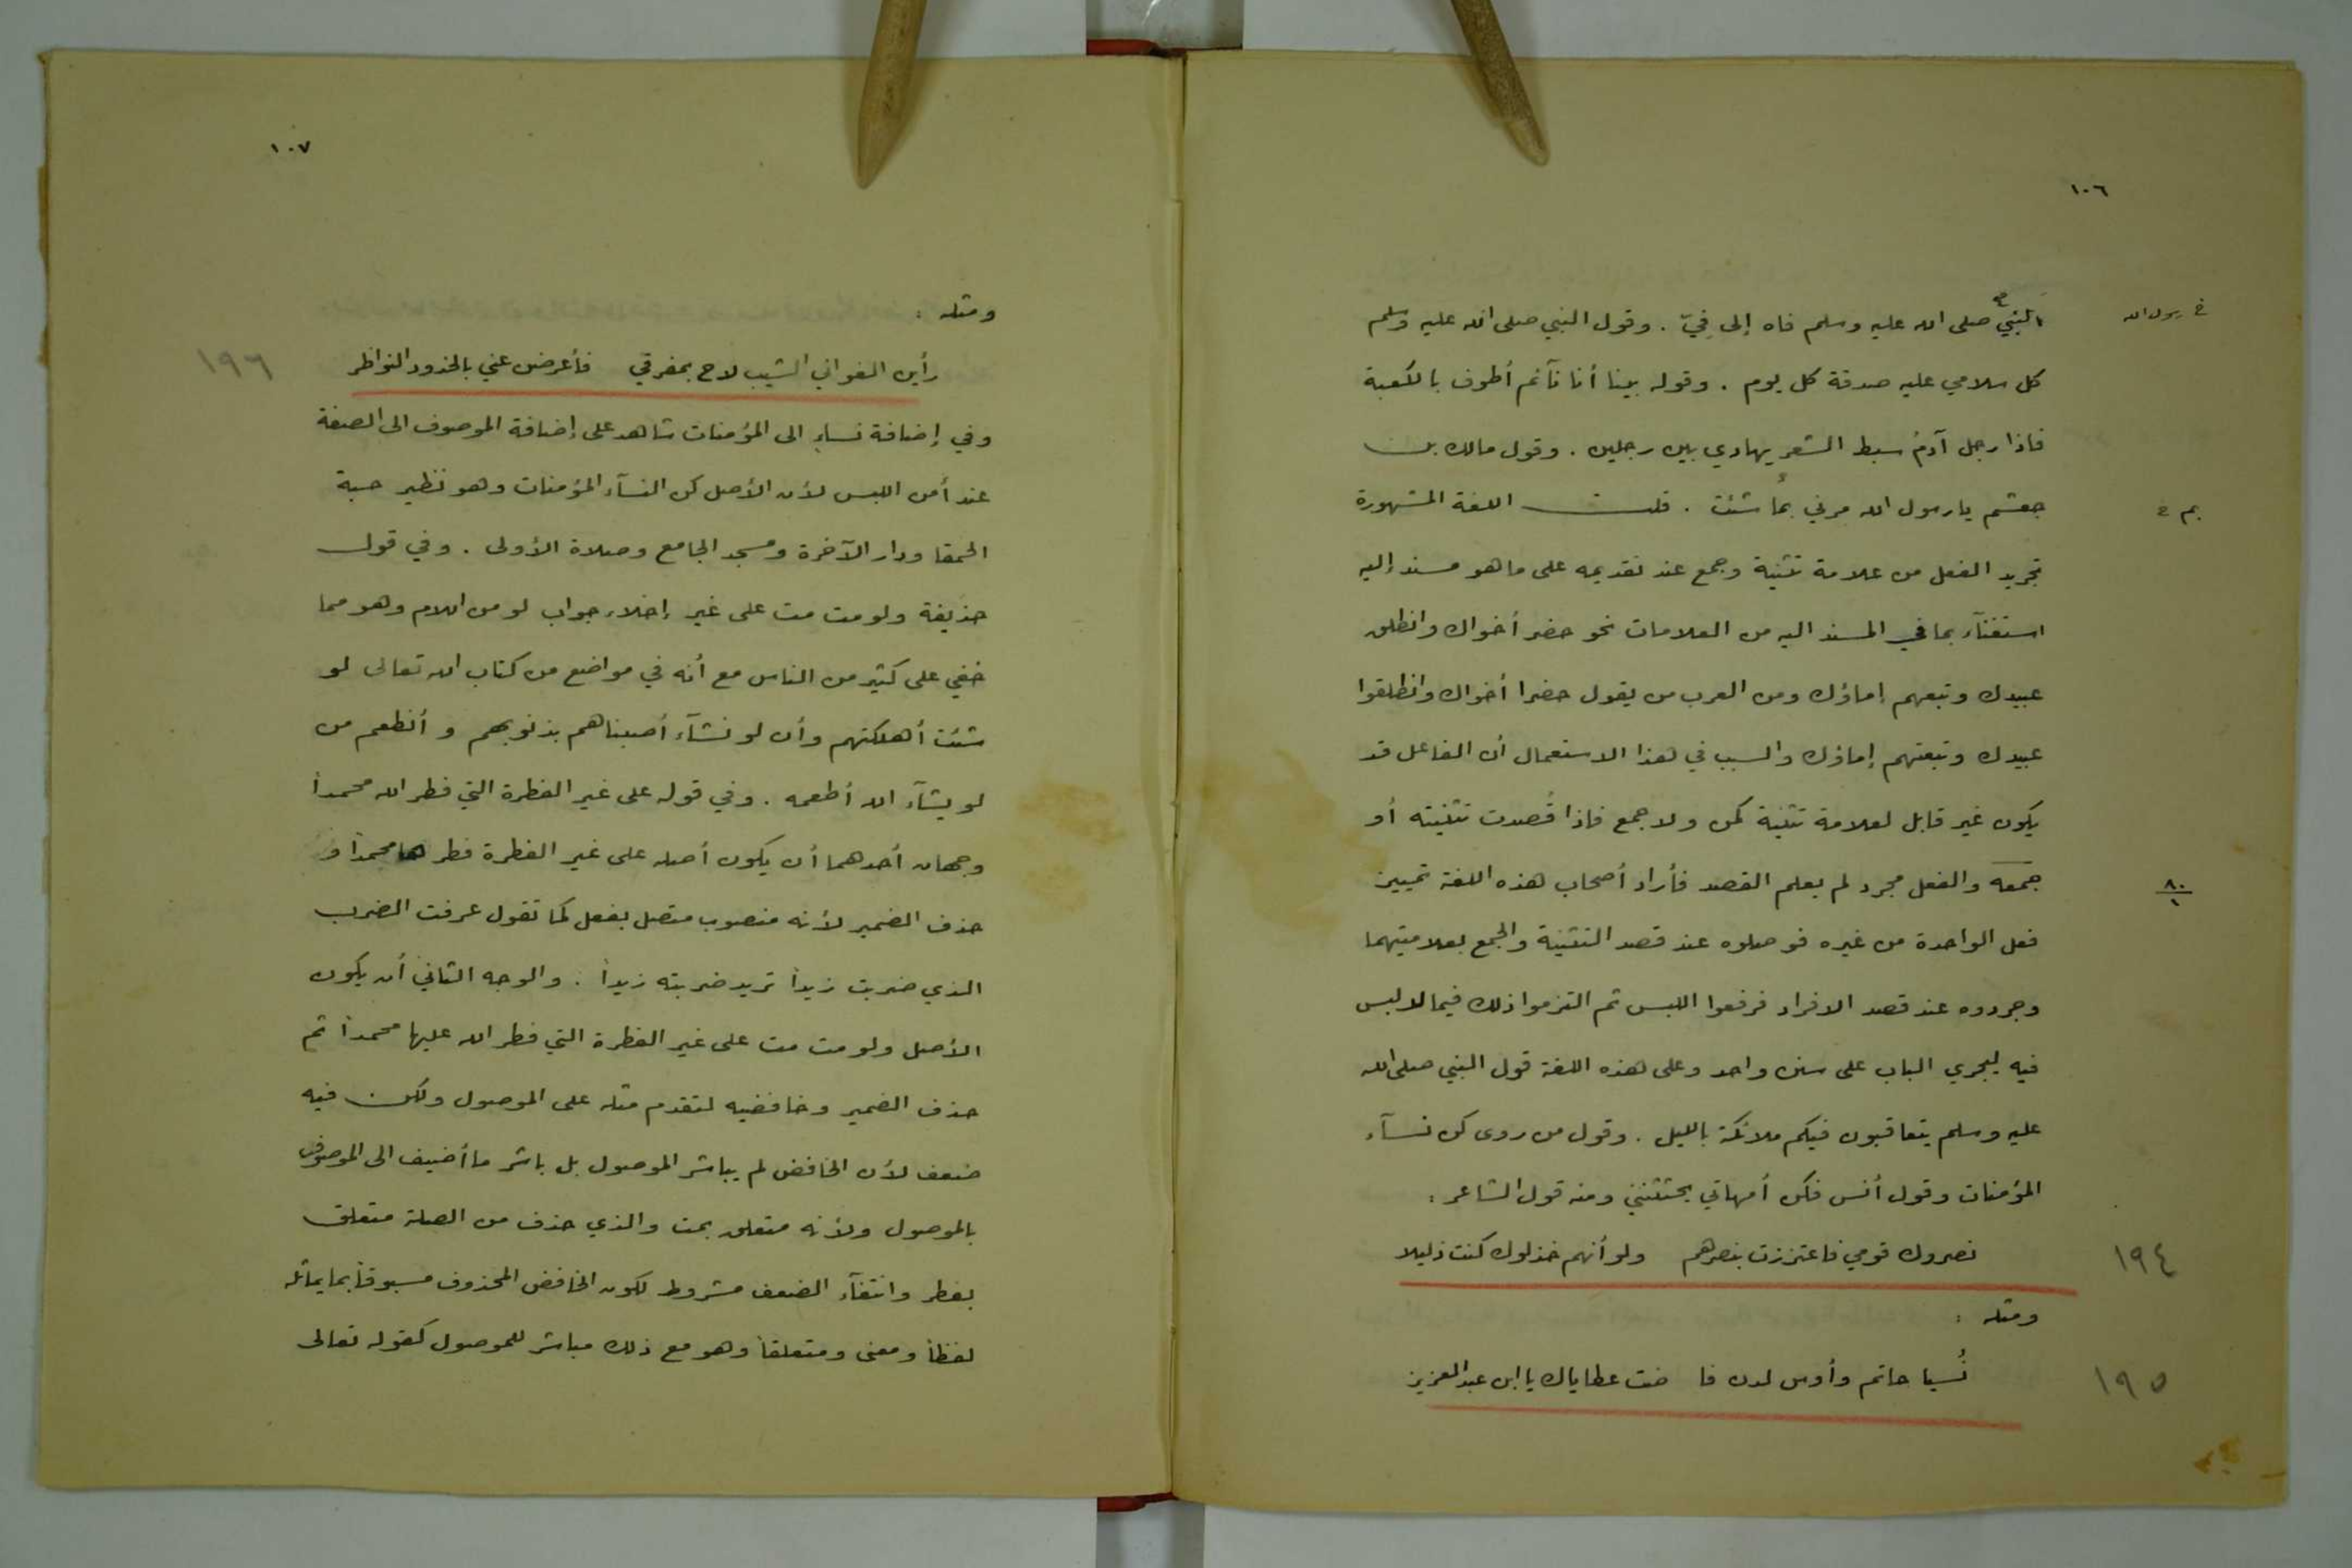 ١٠٦
النبي صلى الله عليه وسلم فاه إلى فِيّ . وقول النبي صلى الله عليه وسلم
خ رسول الله
كل سلامي عليه صدقة كل يوم . وقوله بينا أنا نآئم أطوف بالكعبة
فاذا رجل آدمُ سبط الشعر يهادي بين رجلين . وقول مالك بن
جعشم يا رسول الله مرني بما شئت . قلت اللغة المشهورة
بم
تجريد الفعل من علامة تثنية وجمع عند تقديمه على ما هو مسند إليه
استغنآء بما في المسند اليه من العلامات نحو حضر أخواك وانطلق
عبيدك وتبعهم إماؤك ومن العرب من يقول حضرا أخواك وانطلقوا
عبيدك وتبعتهم إماؤك والسبب في هذا الاستعمال أن الفاعل قد
يكون غير قابل لعلامة تثنية كمن ولا جمع فاذا قُصدت تثنيته أو
جمعه والفعل مجرد لم يعلم القصد فأراد أصحاب هذه اللغة تمييز
٨٠
١
فعل الواحدة من غيره فوصلوه عند قصد التثنية والجمع بعلامتيهما
وجردوه عند قصد الافراد فرفعوا اللبس ثم التزموا ذلك فيما لا لبس
فيه ليجري الباب على سنن واحد وعلى هذه اللغة قول النبي صلى الله
عليه وسلم يتعاقبون فيكم ملائكة بالليل . وقول من روى كن نسآء
المؤمنات وقول أنس فكن أمهاتي يحثثنني ومنه قول الشاعر :
نصروك قومي فاعتززت بنصرهم ولو أنهم خذلوك كنت ذليلا
١٩٤
ومثله :
نُسيا حاتم وأوس لدن فا ضت عطاياك يا ابن عبد العزيز
١٩٥
١٠٧
ومثله :
رأين الغواني الشيب لاح بمفرقي فأعرضن عني بالخدود النواظر
١٩٦
وفي إضافة نساءِ الى المؤمنات شاهد على إضافة الموصوف الى الصفة
عند أمن اللبس لأن الأصل كن النسآء المؤمنات وهو نظير حبة
الحمقا ودار الآخرة ومسجد الجامع وصلاة الأولى . وفي قول
حذيفة ولو مت مت على غير إخلاء جواب لو من اللام وهو مما
خفي على كثير من الناس مع أنه في مواضع من كتاب الله تعالى لو
شئت أهلكتهم وأن لو نشآء أصبناهم بذنوبهم و أنطعم من
لو يشآء الله أطعمه . وفي قوله على غير الفطرة التي فطر الله محمداً
وجهان أحدهما أن يكون أصله على غير الفطرة فطر ها محمداً و
حذف الضمير لأنه منصوب متصل بفعل كما تقول عرفت الضرب
الذي ضربت زيداً تريد ضربته زيداً . والوجه الثاني أن يكون
الأصل ولو مت مت على غير الفطرة التي فطر الله عليها محمداً ثم
حذف الضمير وخافضيه لتقدم مثله على الموصول ولكن فيه
ضعف لأن الخافض لم يباشر الموصول بل باشر ما أضيف الى الموصوف
بالموصول ولأنه متعلق بمت والذي حذف من الصلة متعلق
بفطر وانتفآء الضعف مشروط لكون الخافض المحذوف مسبوقاً بما يماثله
لفظاً ومعنى ومتعلقاً وهو مع ذلك مباشر للموصول كقوله تعالى